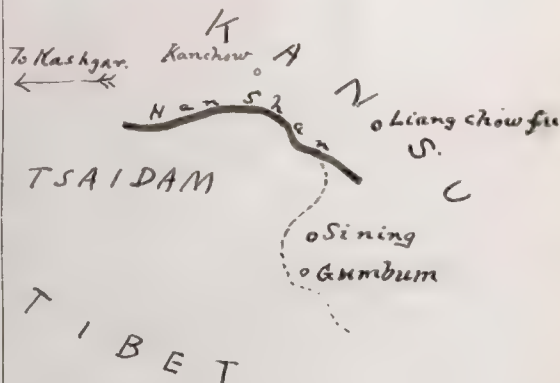 K A N S. C
To Kashgar.
Kanchow
Nan Shan
Liang chow fu
TSAIDAM
Sining
Gumbum
TIBET